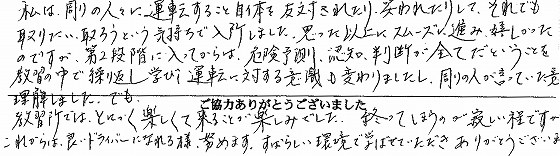 私は、周りの人々に運転すること自体を反対されたり、笑われたりして、それでも
取りたい、取ろうという気持ちで入所しました。思った以上にスムーズに進み、嬉しかった
のですが、第2段階に入ってからは、危険予測、認知、判断が全てだということを
教習の中で繰返し学び、運転に対する意識も変わりましたし、周りの人が言っていた意
理解しました。でも、
ご協力ありがとうございました
教習所では、とにかく楽しくて来ることが楽しみでした。終ってしまうのが寂しい程ですが
これからは、良いドライバーになれる様、努めます。すばらしい環境で学ばせていただき ありがとうございま